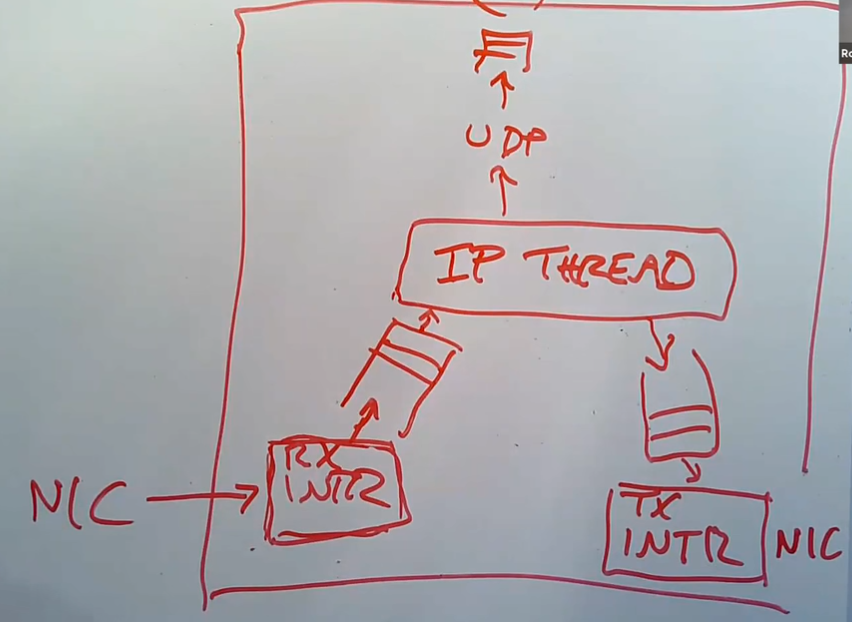 UDP
IP THREAD
RX
INTR
NIC
TX
INTR
NIC
Ro